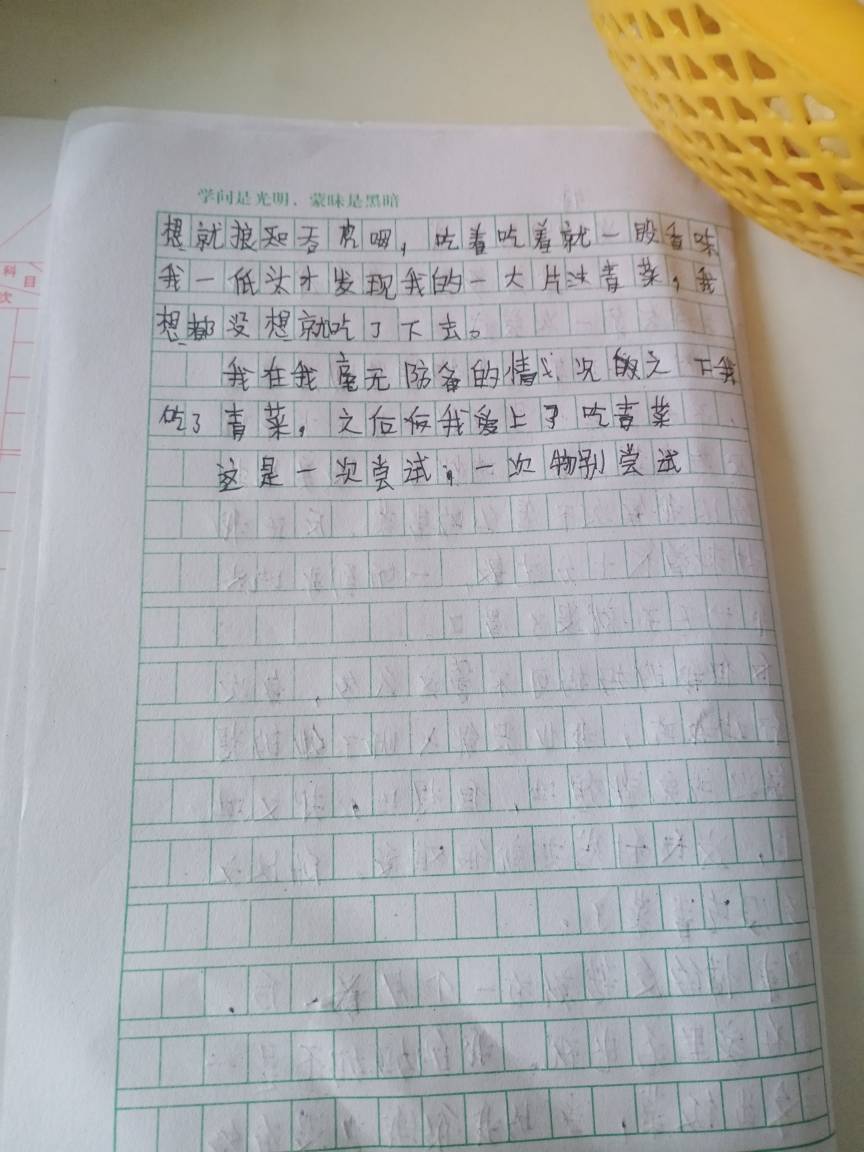 学问是光明，蒙昧是黑暗
科目
次
想就狼知吞虎咽，吃着吃着就一股香味
我一低头才发现我的一大片冰青菜，我
想都没想就吃了下去。
我在我毫无防备的情况的之下我
吃了青菜，之后我爱上了吃青菜
这是一次尝试，一次特别尝试